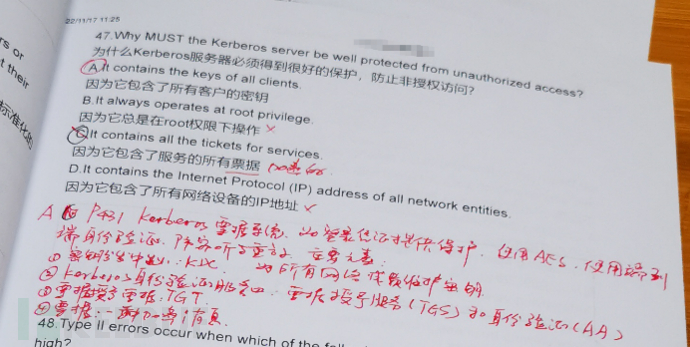 22/11/17 11:25
rs or
t their
标准化的
47.Why MUST the Kerberos server be well protected from unauthorized access?
为什么Kerberos服务器必须得到很好的保护，防止非授权访问？
A.It contains the keys of all clients.
因为它包含了所有客户的密钥
B.It always operates at root privilege.
因为它总是在root权限下操作 ×
C.It contains all the tickets for services.
因为它包含了服务的所有票据
D.It contains the Internet Protocol (IP) address of all network entities.
因为它包含了所有网络设备的IP地址 ×
A P431 Kerberos 票据系统 为登录凭证提供保护 使用AES 使用端到
端身份验证 防窃听与重放 主要元素
① 密钥分发中心：KDC 为所有网络成员维护密钥
② Kerberos身份验证服务器：票据授予服务(TGS)和身份验证(AA)
③ 票据授予票据：TGT
④ 票据：一种加密消息
48.Type II errors occur when which of the
high?